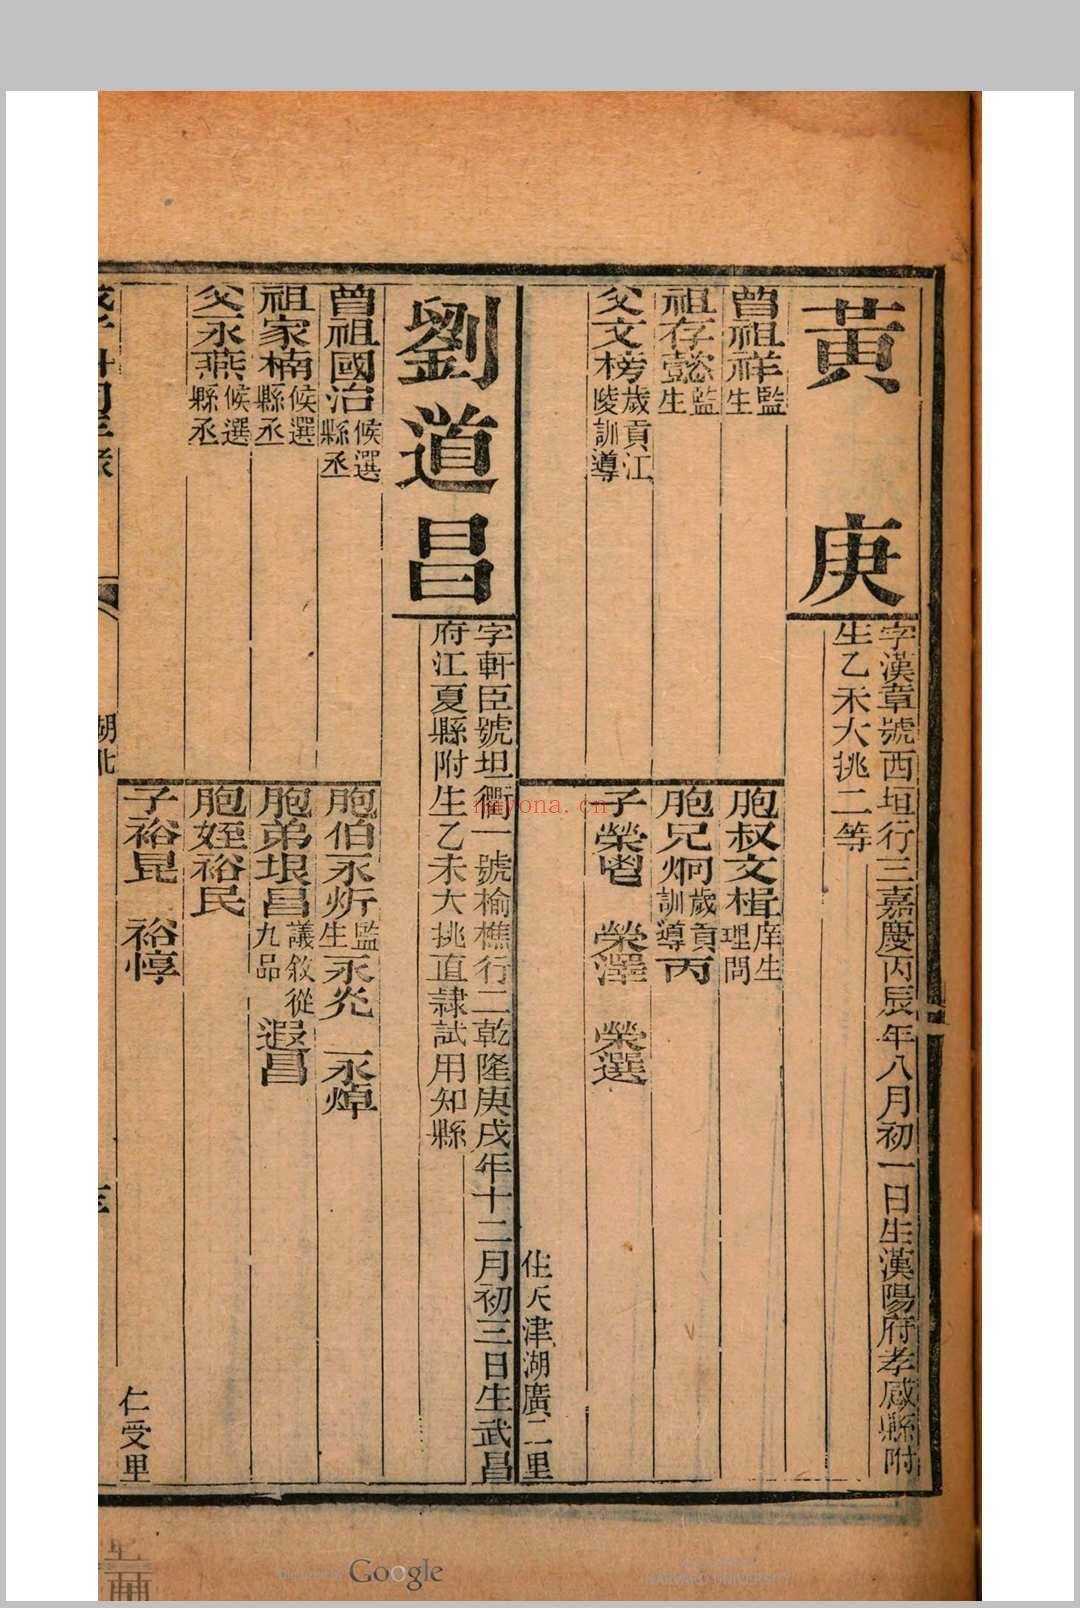 黃庚
字漢章號西垣行三嘉慶丙辰年八月初一日生漢陽府孝感縣附
生乙未大挑二等
曾祖祥監生
祖存懿監生
父文榜歲貢江陵訓導
胞叔文楫庠生理問
胞兄炯歲貢訓導丙
子榮鬯 榮澤 榮選
住天津湖廣二里
劉道昌
字軒臣號坦衢一號榆樵行二乾隆庚戌年十二月初三日生武昌
府江夏縣附生乙未大挑直隸試用知縣
曾祖國治候選縣丞
祖家楠候選縣丞
父永燕候選縣丞
胞伯永炘監生永炎 永焯
胞弟垠昌議敘從九品遐昌
胞姪裕民
子裕昆 裕惇
仁受里
湖北
nayona.cn
Google
HARVARD UNIVERSITY